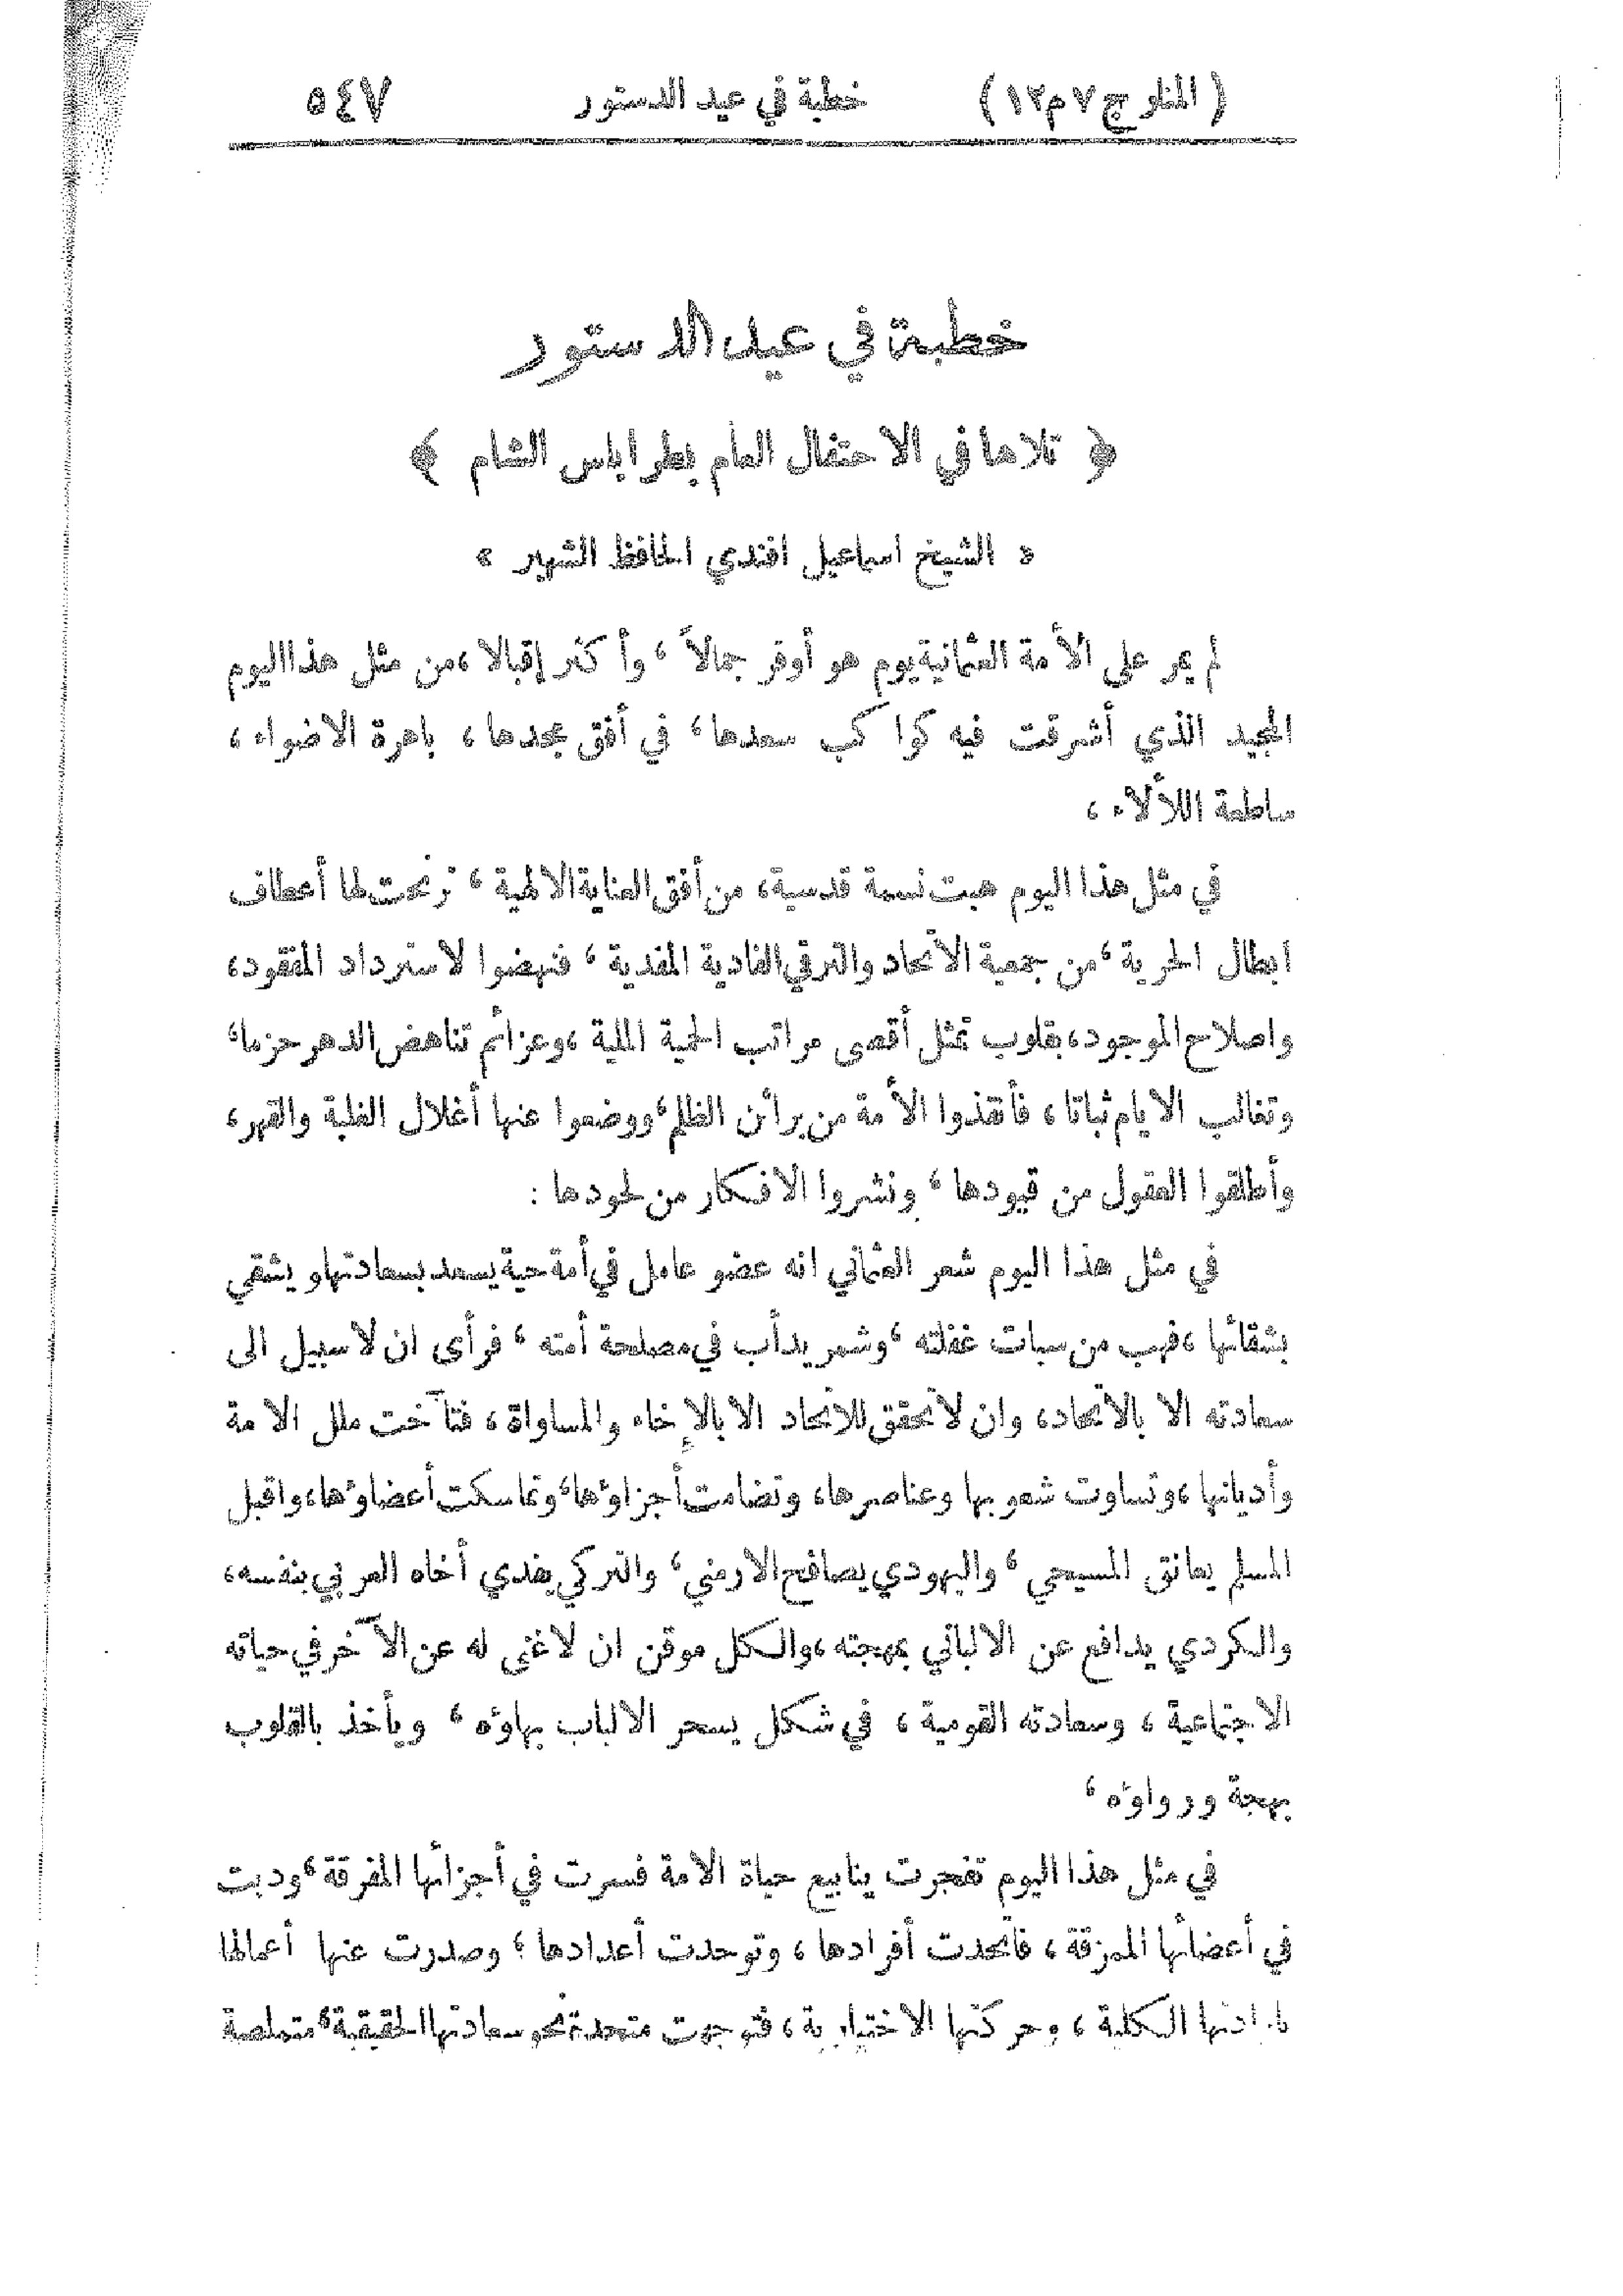 (المنار ج٧م١٢) خطبة في عيد الدستور ٥٤٧
خطبة في عيد الدستور
﴿ تلاها في الاحتفال العام بطرابلس الشام ﴾
« الشيخ اسماعيل افندي الحافظ الشهير »
لم يمر على الأمة العثمانية يوم هو أوفر جمالاً ، وأكثر إقبالا ، من مثل هذا اليوم
المجيد الذي أشرقت فيه كواكب سعدها ، في أفق مجدها ، باهرة الاضواء ،
ساطعة اللألاء ،
في مثل هذا اليوم هبت نسمة قدسية ، من أفق العناية الالهية ، ترنحت لها أعطاف
ابطال الحرية ، من جمعية الاتحاد والترقي الفادية المفدية ، فنهضوا لاسترداد المفقود ،
واصلاح الموجود ، بقلوب تمثل أقصى مراتب الحمية الملية ، وعزائم تناهض الدهر حزما ،
وتغالب الايام ثباتا ، فأنقذوا الأمة من برائن الظلم ، ووضعوا عنها أغلال الغلبة والقهر ،
وأطلقوا العقول من قيودها ، ونشروا الافكار من لحودها :
في مثل هذا اليوم شعر العثماني انه عضو عامل في أمة حية يسعد بسعادتها ويشقى
بشقائها ، فهب من سبات غفلته ، وشمر يدأب في مصلحة أمته ، فرأى ان لا سبيل الى
سعادته الا بالاتحاد ، وان لا تحقق للاتحاد الا بالإخاء والمساواة ، فتآخت ملل الامة
وأديانها ، وتساوت شعوبها وعناصرها ، وتضامت أجزاؤها ، وتماسكت أعضاؤها ، واقبل
المسلم يعانق المسيحي ، واليهودي يصافح الارمني ، والتركي يفدي أخاه العربي بنفسه ،
والكردي يدافع عن الالباني بمهجته ، والكل موقن ان لا غنى له عن الآخر في حياته
الاجتماعية ، وسعادته القومية ، في شكل يسحر الالباب بهاؤه ، ويأخذ بالقلوب
بهجة ورواؤه ،
في مثل هذا اليوم تفجرت ينابيع حياة الامة فسرت في أجزائها المفرقة ، ودبت
في أعضائها الممزقة ، فاتحدت أفرادها ، وتوحدت أعدادها ؛ وصدرت عنها أعمالها
بارادتها الكلية ، وحركتها الاختيارية ، فتوجهت متحدة نحو سعادتها الحقيقية ، متملصة